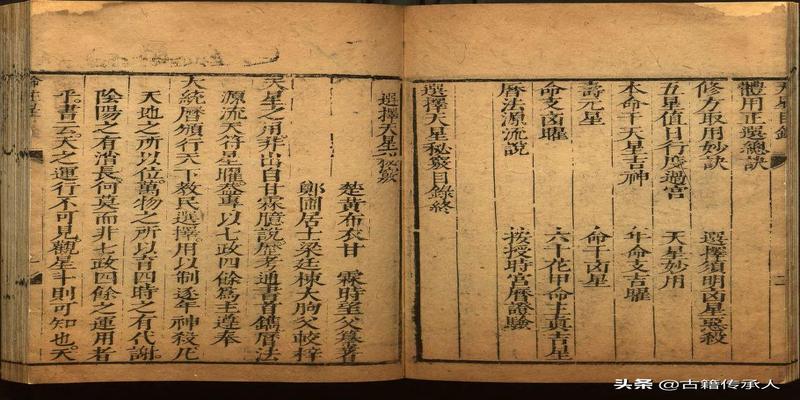 天星目錄
體用正選總訣
修方取用妙訣 選擇須明凶星惡殺
五星值日行度過宮 天星妙用
本命干天星吉神 年命支吉曜
壽元星 命干凶星
命支凶曜 六十花甲命主真吉星
曆法源流說 按授時官曆證驗
選擇天星秘竅目錄終
選擇天星秘竅
楚黃布衣甘 霖時望父纂著
鄭圃居士梁廷棟大胸父較梓
天星之用非出自甘霖臆說歷考通書首鐫曆法
源流天符星曜蓋專以七政四餘為主遵奉
大統曆頒行天下教民選擇用以制逐年神殺凡
天地之所以位萬物之所以育四時之有代謝
陰陽之有消長何莫而非七政四餘之運用者
乎書云天之運行不可見觀星斗則可知也天
头条 @古籍传承人